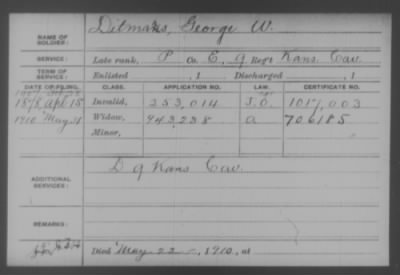 NAME OF SOLDIER: Ditmars, George W.
SERVICE: Late rank, P Co. E, 9 Reg't Kans. Cav.
TERM OF SERVICE: Enlisted , 1 Discharged , 1
DATE OF FILING. CLASS. APPLICATION NO. LAW. CERTIFICATE NO.
1878 Apl 15 Invalid, 253,014 1017,003
1910 May 31 Widow, 943,238 a 706185
Minor,
ADDITIONAL SERVICES: D 9 Kans Cav.
REMARKS:
Died May 22, 1910, at